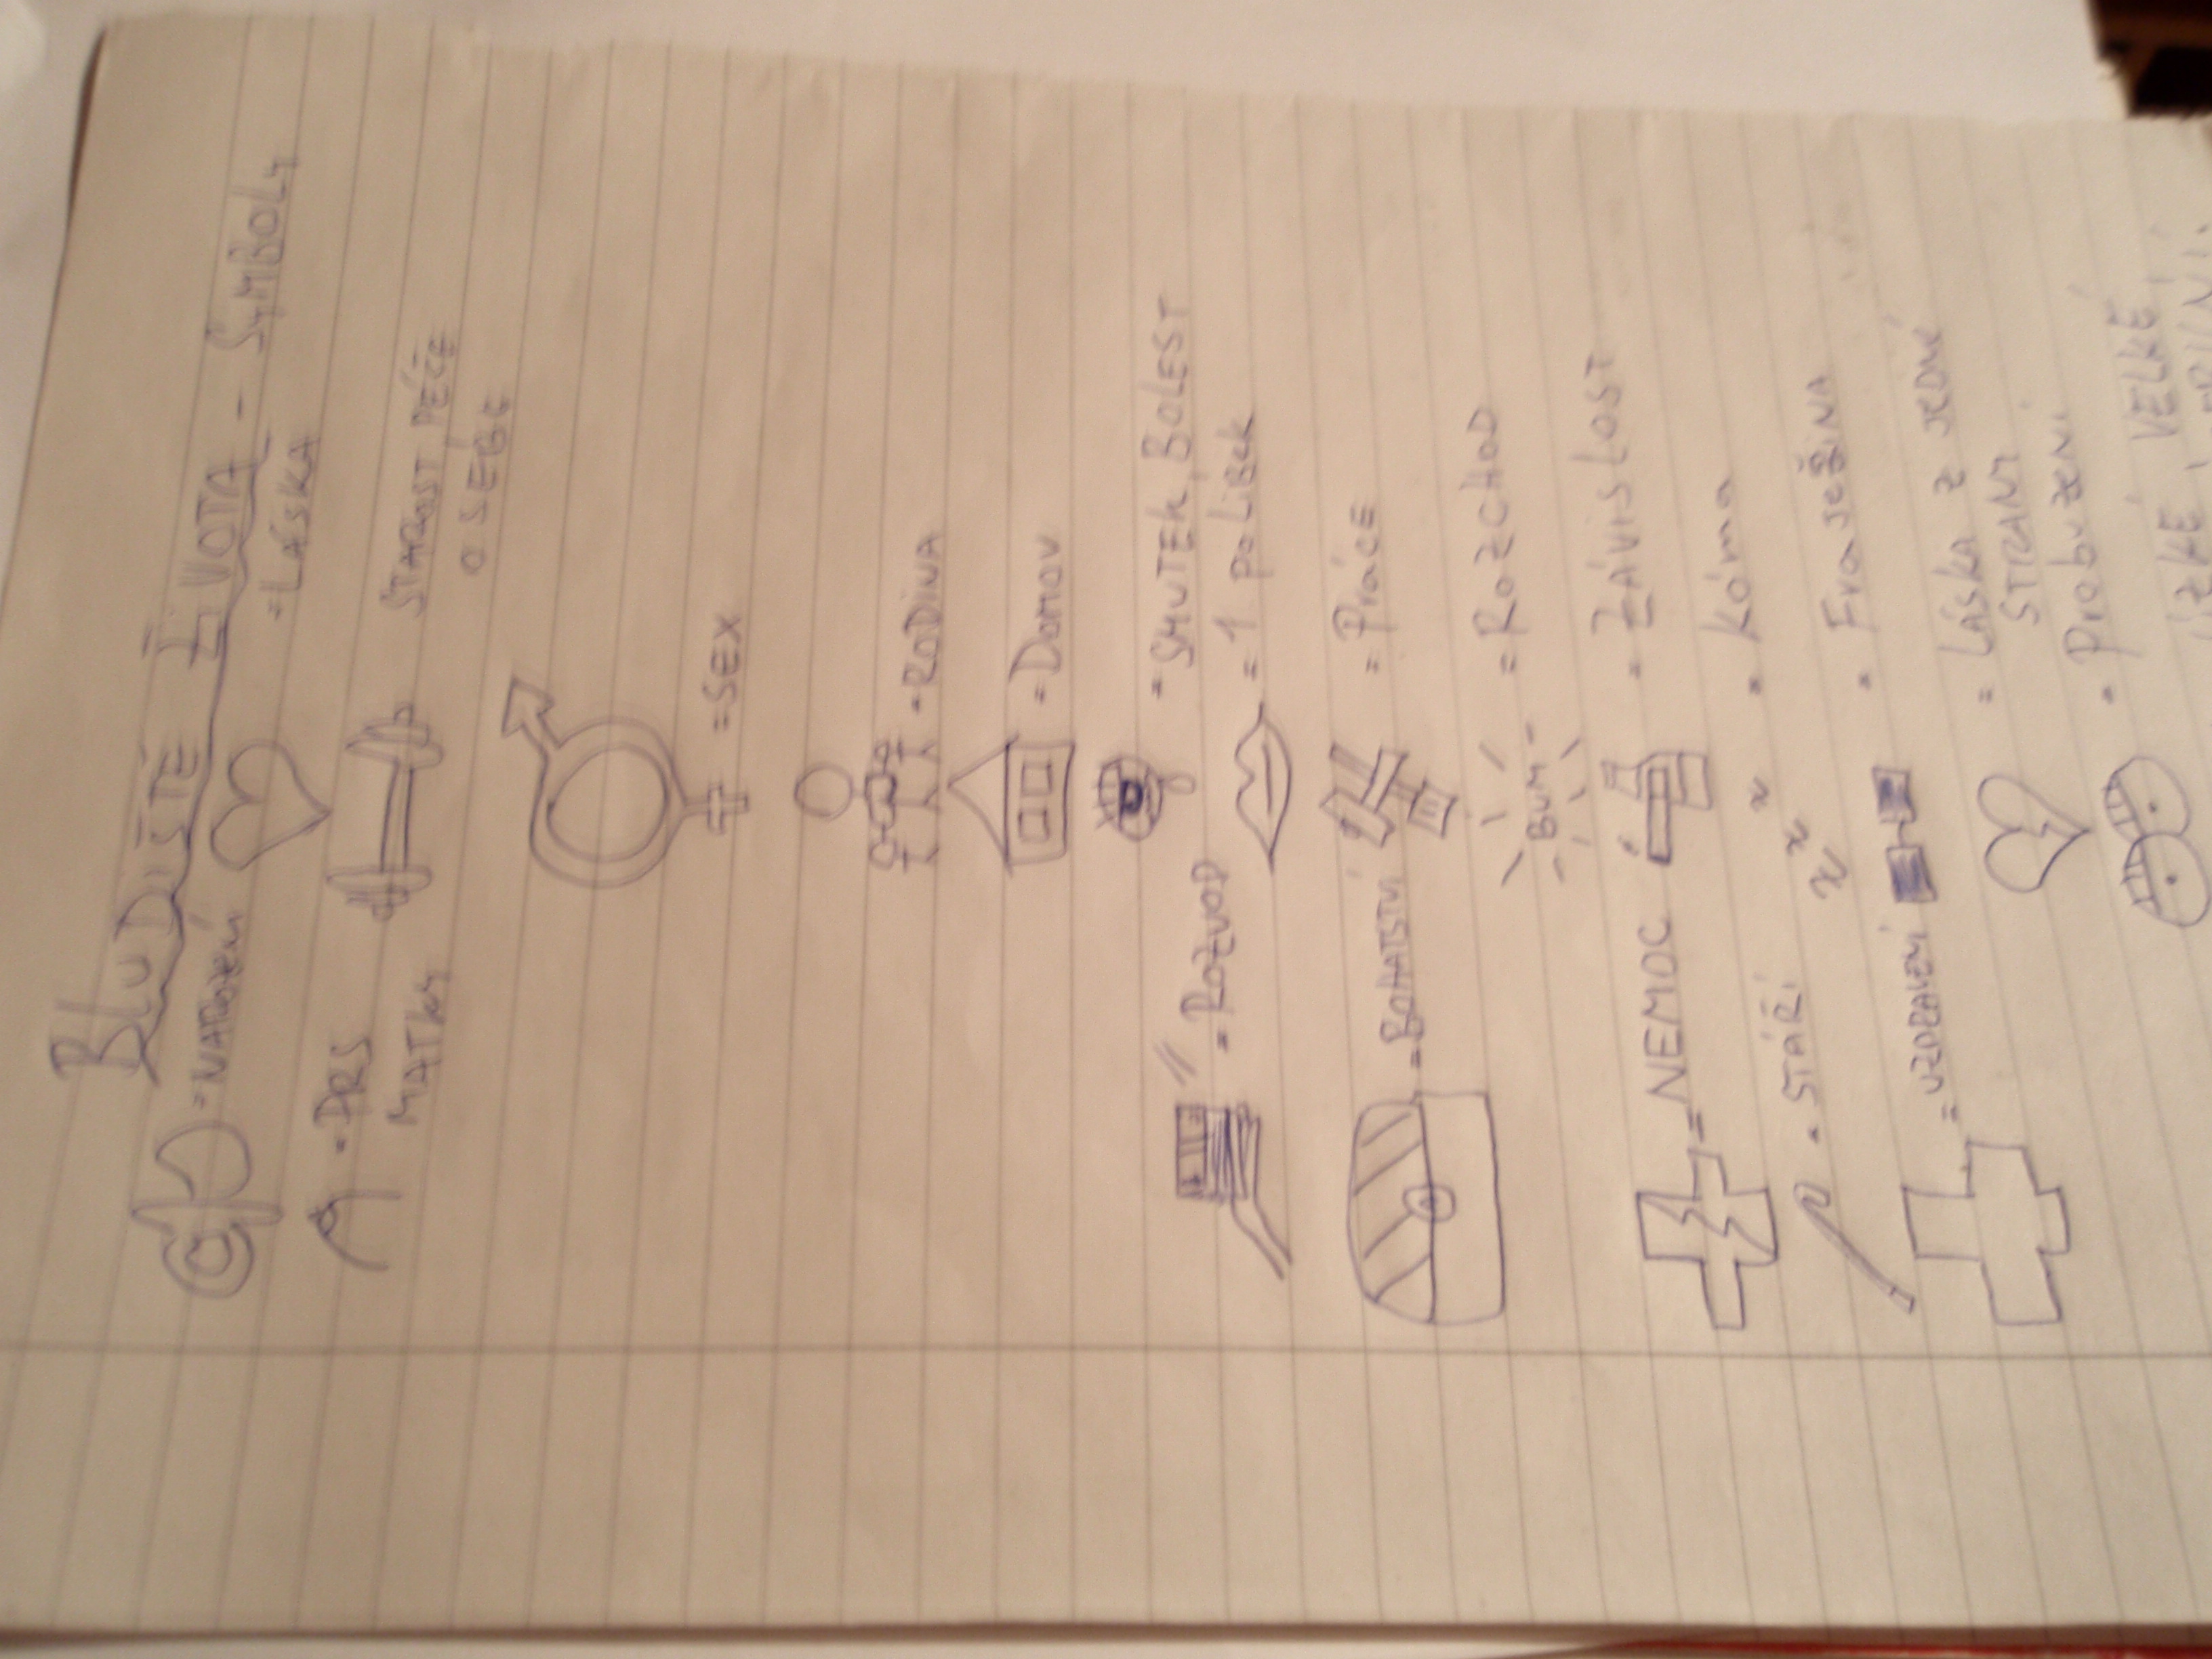 BLUDIŠTĚ ŽIVOTA - SYMBOLY
= NAROZENÍ
= LÁSKA
= PRS MATKY
STAROST, PÉČE O SEBE
= SEX
= RODINA
= DOMOV
= SMUTEK, BOLEST
= ROZVOD
= 1 POLIBEK
= BOHATSTVÍ
= PRÁCE
BUM
= ROZCHOD
= NEMOC
= ZÁVISLOST
= STÁŘÍ
= KÓMA
= UZDRAVENÍ
= FRAJEŘINA
= LÁSKA Z JEDNÉ STRANY
= PROBUZENÍ
VELKÉ,